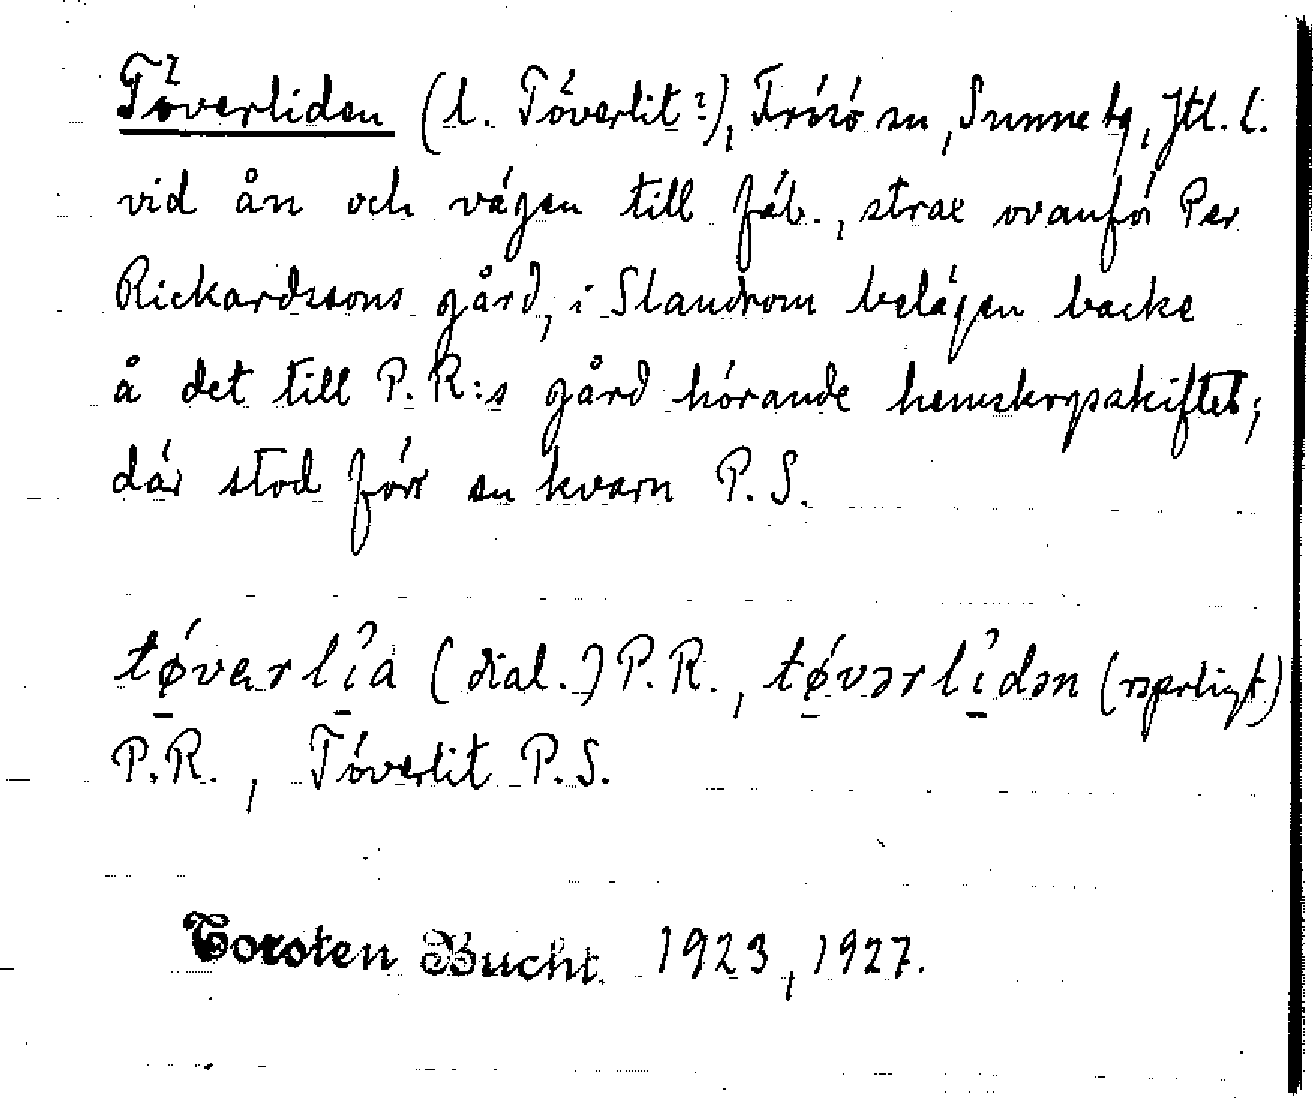 Töverliden (l. Töverlit?), Frösö sn, Sunne tg, Jtl. l.
vid ån och vägen till fäb., strax ovanför Per
Rickardssons gård, i Slandrom belägen backe
å det till P. R:s gård hörande hemskogsskiftet;
där stod förr en kvarn P. S.
tø´verlìa (dial.) P. R., tø´vərlìdən (vanligt)
P. R., Töverlit P. S.
Torsten Bucht. 1923, 1927.